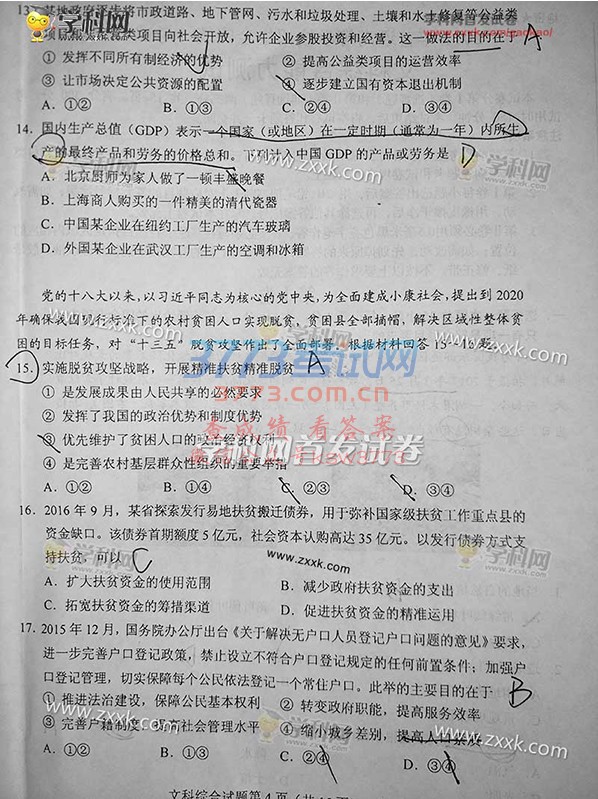 13. 某地政府逐步将市政道路、地下管网、污水和垃圾处理、土壤和水土修复等公益类
项目向社会开放，允许企业参股投资和经营。这一做法的目的在于 A
① 发挥不同所有制经济的优势 ② 提高公益类项目的运营效率
③ 让市场决定公共资源的配置 ④ 逐步建立国有资本退出机制
A．①② B．①③ C．②④ D．③④
14. 国内生产总值（GDP）表示一个国家（或地区）在一定时期（通常为一年）内所生
产的最终产品和劳务的价格总和。下列计入中国 GDP 的产品或劳务是 D
A．北京厨师为家人做了一顿丰盛晚餐
B．上海商人购买的一件精美的清代瓷器
C．中国某企业在纽约工厂生产的汽车玻璃
D．外国某企业在武汉工厂生产的空调和冰箱
党的十八大以来，以习近平同志为核心的党中央，为全面建成小康社会，提出到 2020
年确保我国现行标准下的农村贫困人口实现脱贫，贫困县全部摘帽，解决区域性整体贫
困的目标任务，对“十三五”脱贫攻坚作出了全面部署。根据材料回答 15～16 题。
15. 实施脱贫攻坚战略，开展精准扶贫精准脱贫 A
① 是发展成果由人民共享的必然要求
② 发挥了我国的政治优势和制度优势
③ 优先维护了贫困人口的政治经济权利
④ 是完善农村基层群众性组织的重要举措
A．①② B．①④ C．②③ D．③④
16. 2016 年 9 月，某省探索发行易地扶贫搬迁债券，用于弥补国家级扶贫工作重点县的
资金缺口。该债券首期额度 5 亿元，社会资本认购高达 35 亿元。以发行债券方式支
持扶贫，可以 C
A．扩大扶贫资金的使用范围 B．减少政府扶贫资金的支出
C．拓宽扶贫资金的筹措渠道 D．促进扶贫资金的精准运用
17. 2015 年 12 月，国务院办公厅出台《关于解决无户口人员登记户口问题的意见》要求，
进一步完善户口登记政策，禁止设立不符合户口登记规定的任何前置条件；加强户
口登记管理，切实保障每个公民依法登记一个常住户口。此举的主要目的在于 B
① 推进法治建设，保障公民基本权利 ② 转变政府职能，提高服务效率
③ 完善户籍制度，提高社会管理水平 ④ 缩小城乡差别，提高人口素质
A．①② B．①③ C．②④ D．③④
文科综合试题第 4 页（共
学科网首发试卷
学科网
www.zxxk.com
3773考试网
3773.com.cn
查成绩 看答案